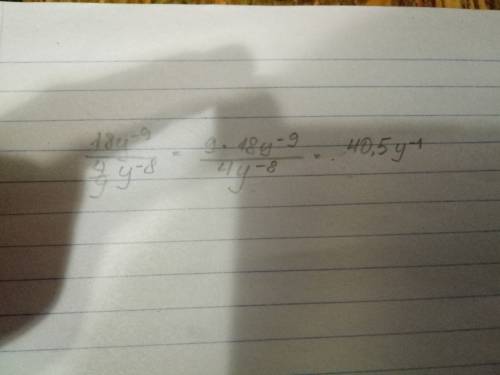 18y⁻⁹ / (4/9 y⁻⁸) = 9·18y⁻⁹ / 4y⁻⁸ = 40,5y⁻¹